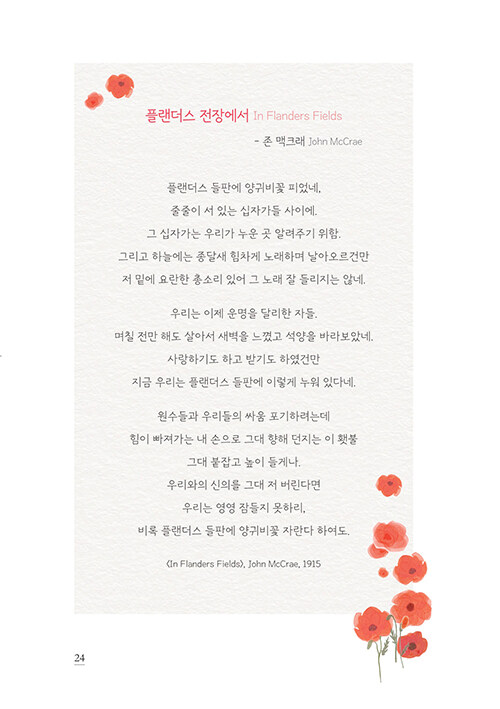 플랜더스 전장에서 In Flanders Fields
- 존 맥크래 John McCrae
플랜더스 들판에 양귀비꽃 피었네,
줄줄이 서 있는 십자가들 사이에.
그 십자가는 우리가 누운 곳 알려주기 위함.
그리고 하늘에는 종달새 힘차게 노래하며 날아오르건만
저 밑에 요란한 총소리 있어 그 노래 잘 들리지는 않네.
우리는 이제 운명을 달리한 자들.
며칠 전만 해도 살아서 새벽을 느꼈고 석양을 바라보았네.
사랑하기도 하고 받기도 하였건만
지금 우리는 플랜더스 들판에 이렇게 누워 있다네.
원수들과 우리들의 싸움 포기하려는데
힘이 빠져가는 내 손으로 그대 향해 던지는 이 횃불
그대 붙잡고 높이 들게나.
우리와의 신의를 그대 저 버린다면
우리는 영영 잠들지 못하리,
비록 플랜더스 들판에 양귀비꽃 자란다 하여도.
〈In Flanders Fields〉, John McCrae, 1915
24